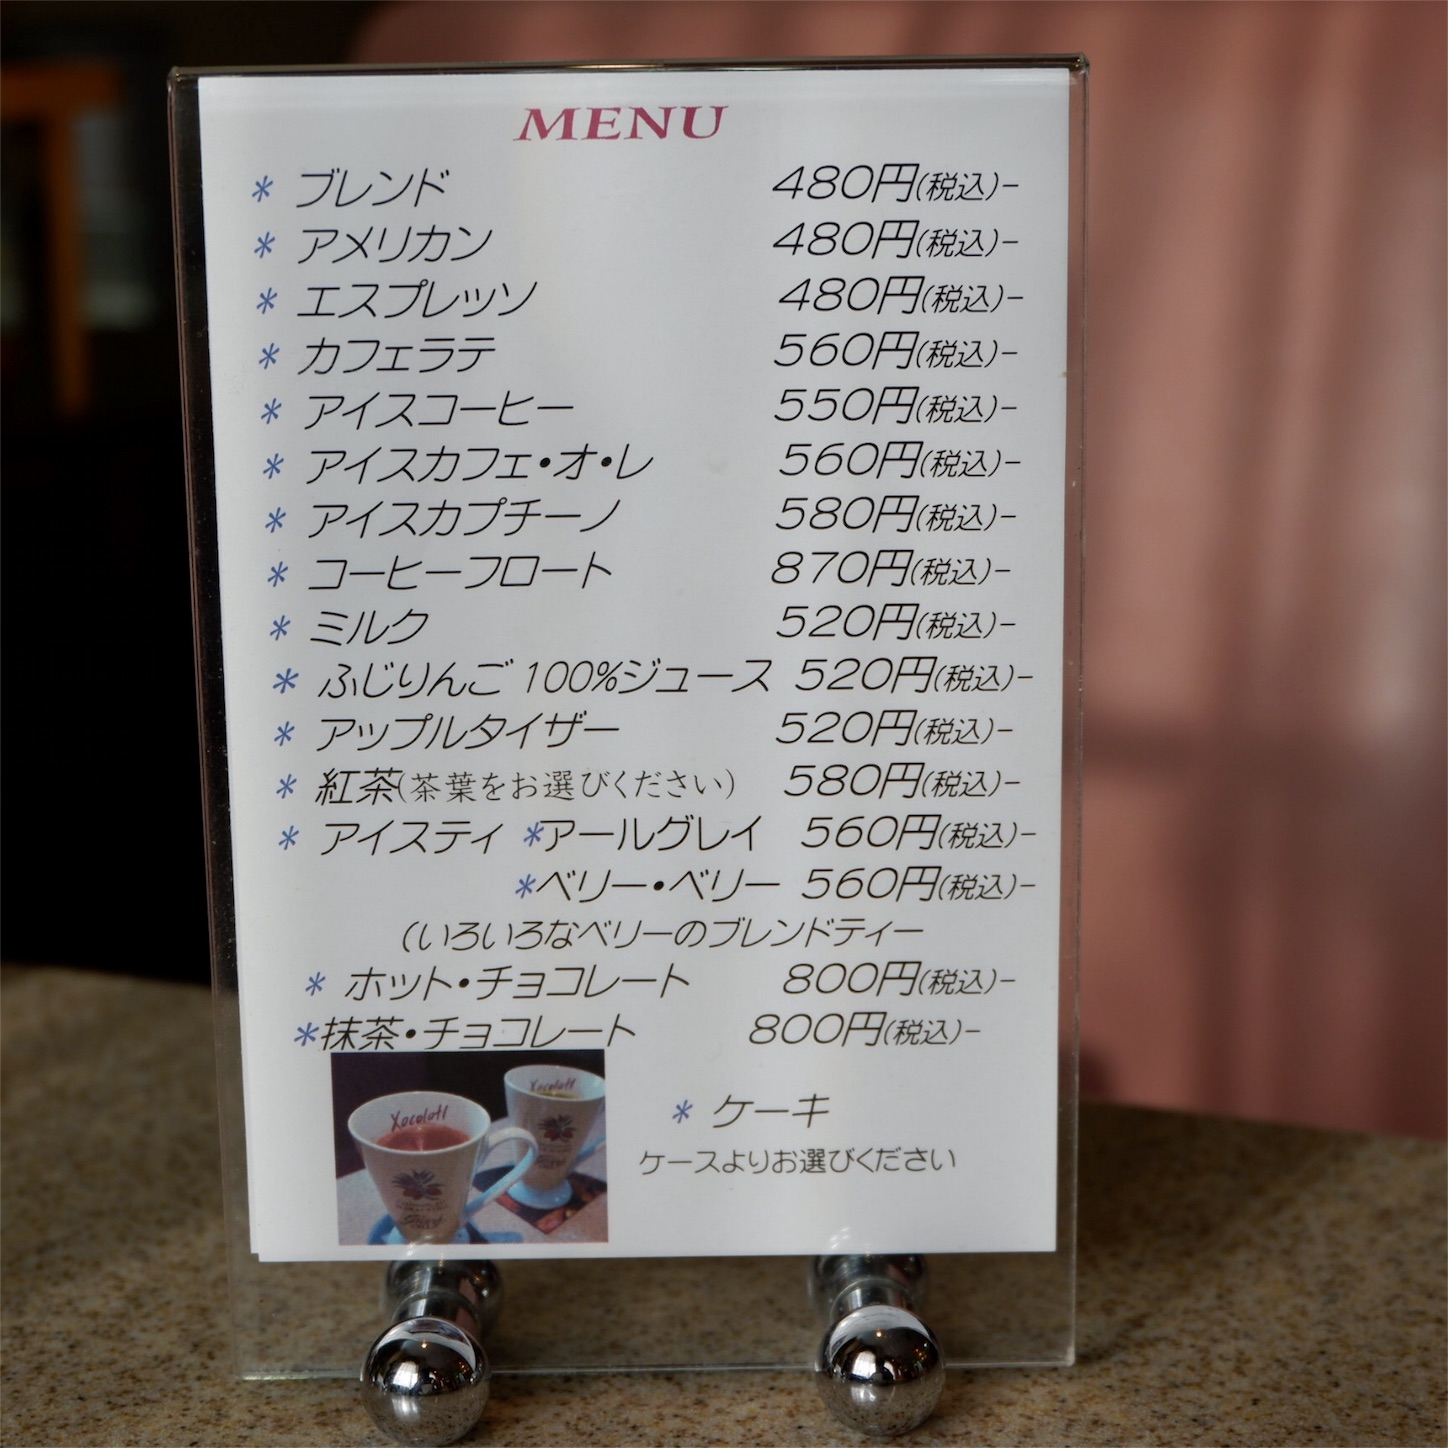 MENU
* ブレンド 480円(税込)-
* アメリカン 480円(税込)-
* エスプレッソ 480円(税込)-
* カフェラテ 560円(税込)-
* アイスコーヒー 550円(税込)-
* アイスカフェ・オ・レ 560円(税込)-
* アイスカプチーノ 580円(税込)-
* コーヒーフロート 870円(税込)-
* ミルク 520円(税込)-
* ふじりんご 100%ジュース 520円(税込)-
* アップルタイザー 520円(税込)-
* 紅茶(茶葉をお選びください) 580円(税込)-
* アイスティ *アールグレイ 560円(税込)-
*ベリー・ベリー 560円(税込)-
(いろいろなベリーのブレンドティー
* ホット・チョコレート 800円(税込)-
*抹茶・チョコレート 800円(税込)-
* ケーキ
ケースよりお選びください
Xocolatl
Xocolatl